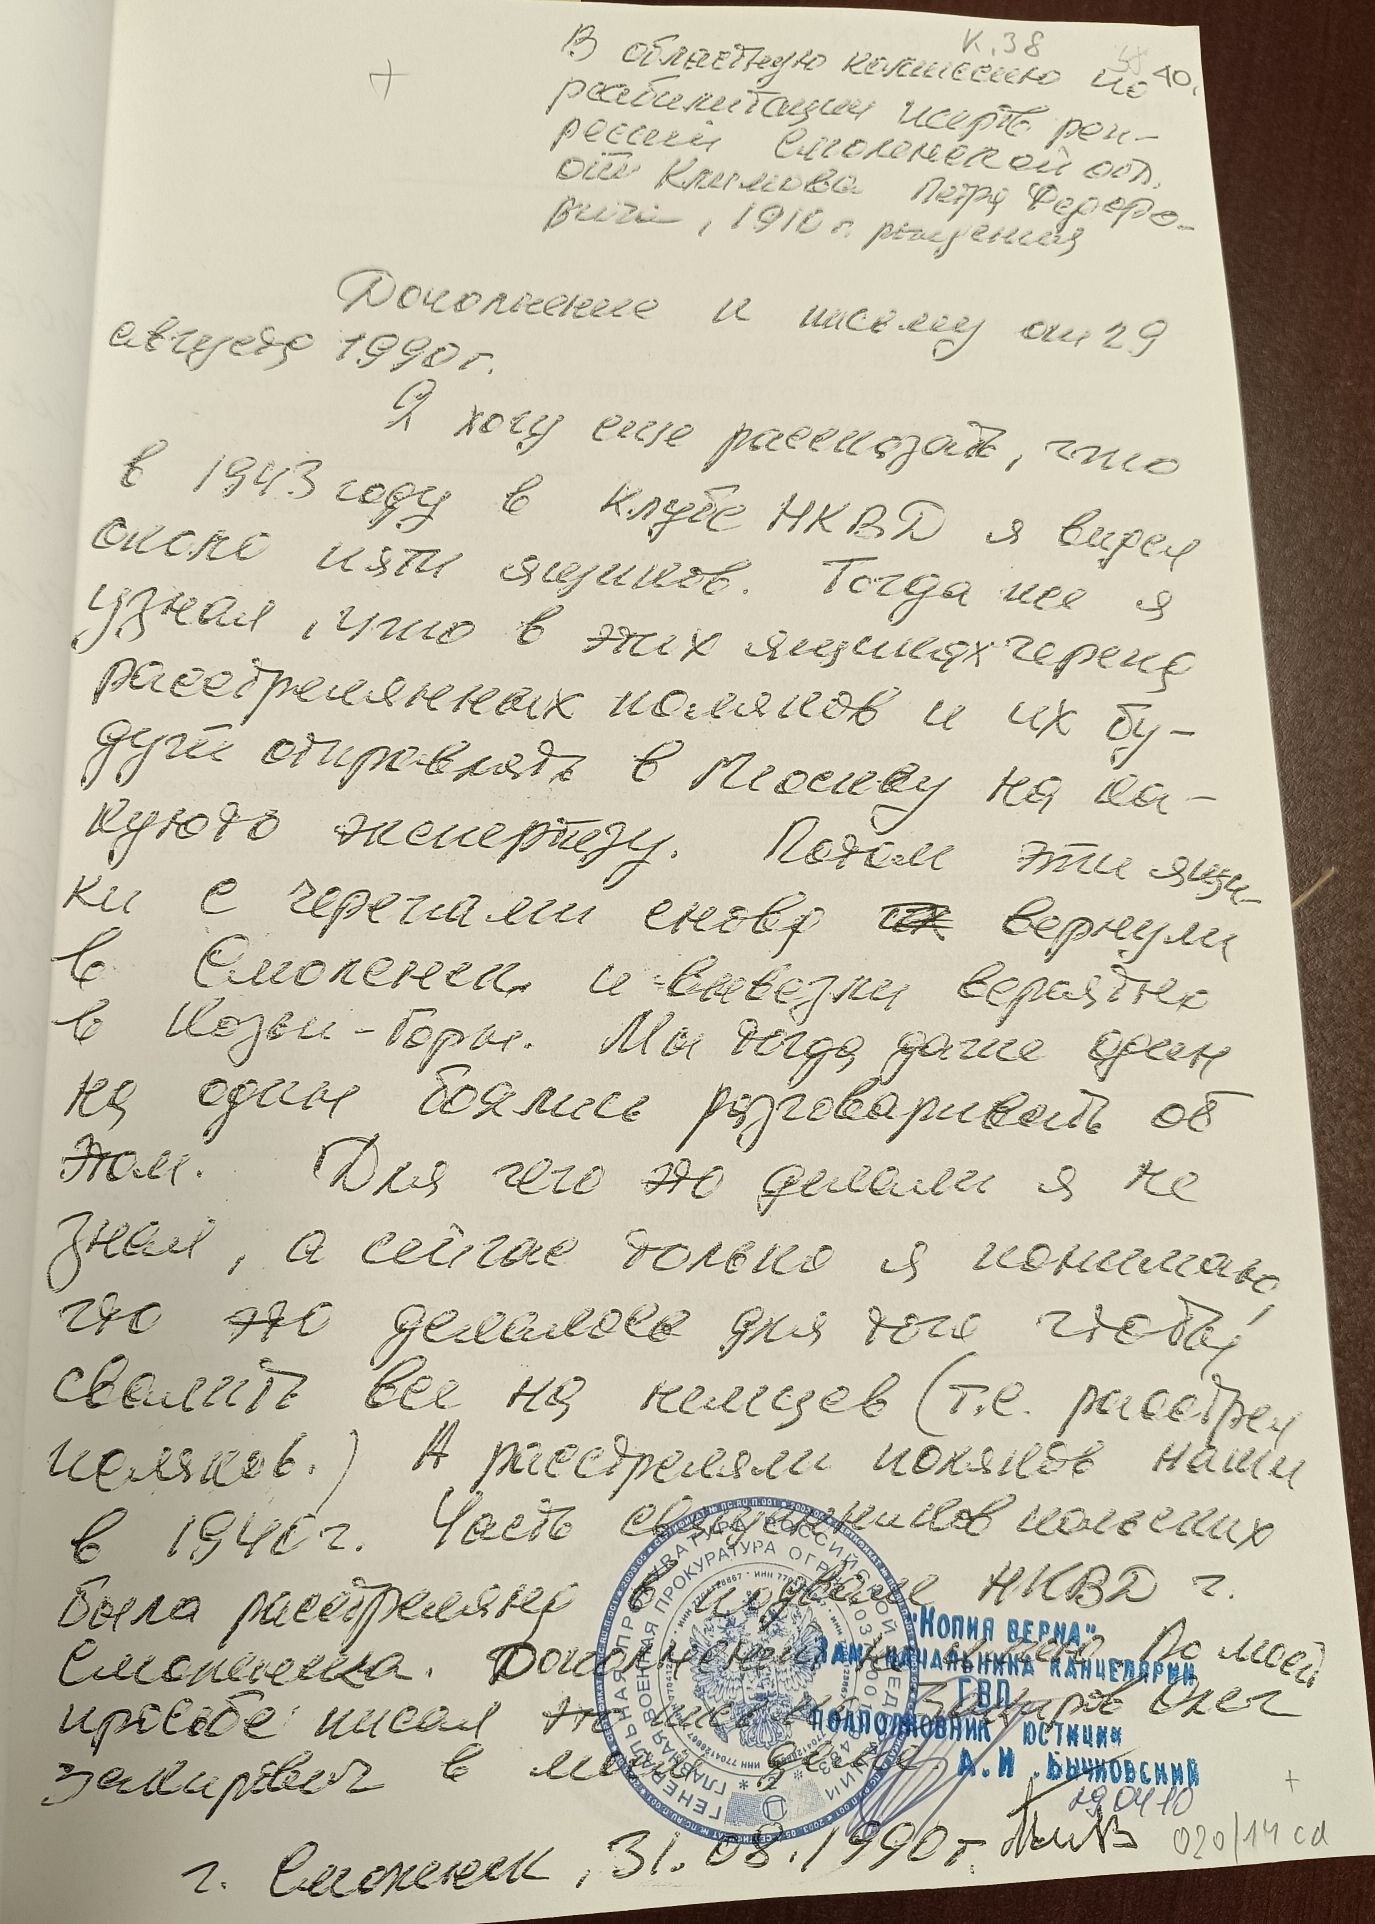 К.38
40.
В областную комиссию по
реабилитации жертв реп-
рессий Смоленской обл.
от Климова Петра Федоро-
вича, 1910 г. рождения
Дополнение к письму от 29
августа 1990 г.
Я хочу еще рассказать, что
в 1943 году в клубе НКВД я видел
около пяти ящиков. Тогда же я
узнал, что в этих ящиках черепа
расстрелянных поляков и их бу-
дут отправлять в Москву на ка-
куюто экспертизу. Потом эти ящи-
ки с черепами снова вернули
в Смоленск и вывезли вероятно
в Козьи-Горы. Мы тогда даже один
на один боялись разговаривать об
этом. Для чего это делали я не
знал, а сейчас только я понимаю,
что это делалось для того чтобы
свалить все на немцев (т.е. расстрел
поляков.) А расстреляли поляков наши
в 1940 г. Часть священников польских
была расстреляна в подвале НКВД г.
Смоленска. Дополнений не имею. По моей
просьбе писал это письмо Закиров Олег
Закирович в моем доме.
г. Смоленск, 31.08.1990 г.
ГЕНЕРАЛЬНАЯ ПРОКУРАТУРА РОССИЙСКОЙ ФЕДЕРАЦИИ
ГЛАВНАЯ ВОЕННАЯ ПРОКУРАТУРА
"КОПИЯ ВЕРНА"
ЗАМ. НАЧАЛЬНИКА КАНЦЕЛЯРИИ
ГВП
ПОДПОЛКОВНИК ЮСТИЦИИ
А.И. БЫЧКОВСКИЙ
29 04 10
020/14 cd